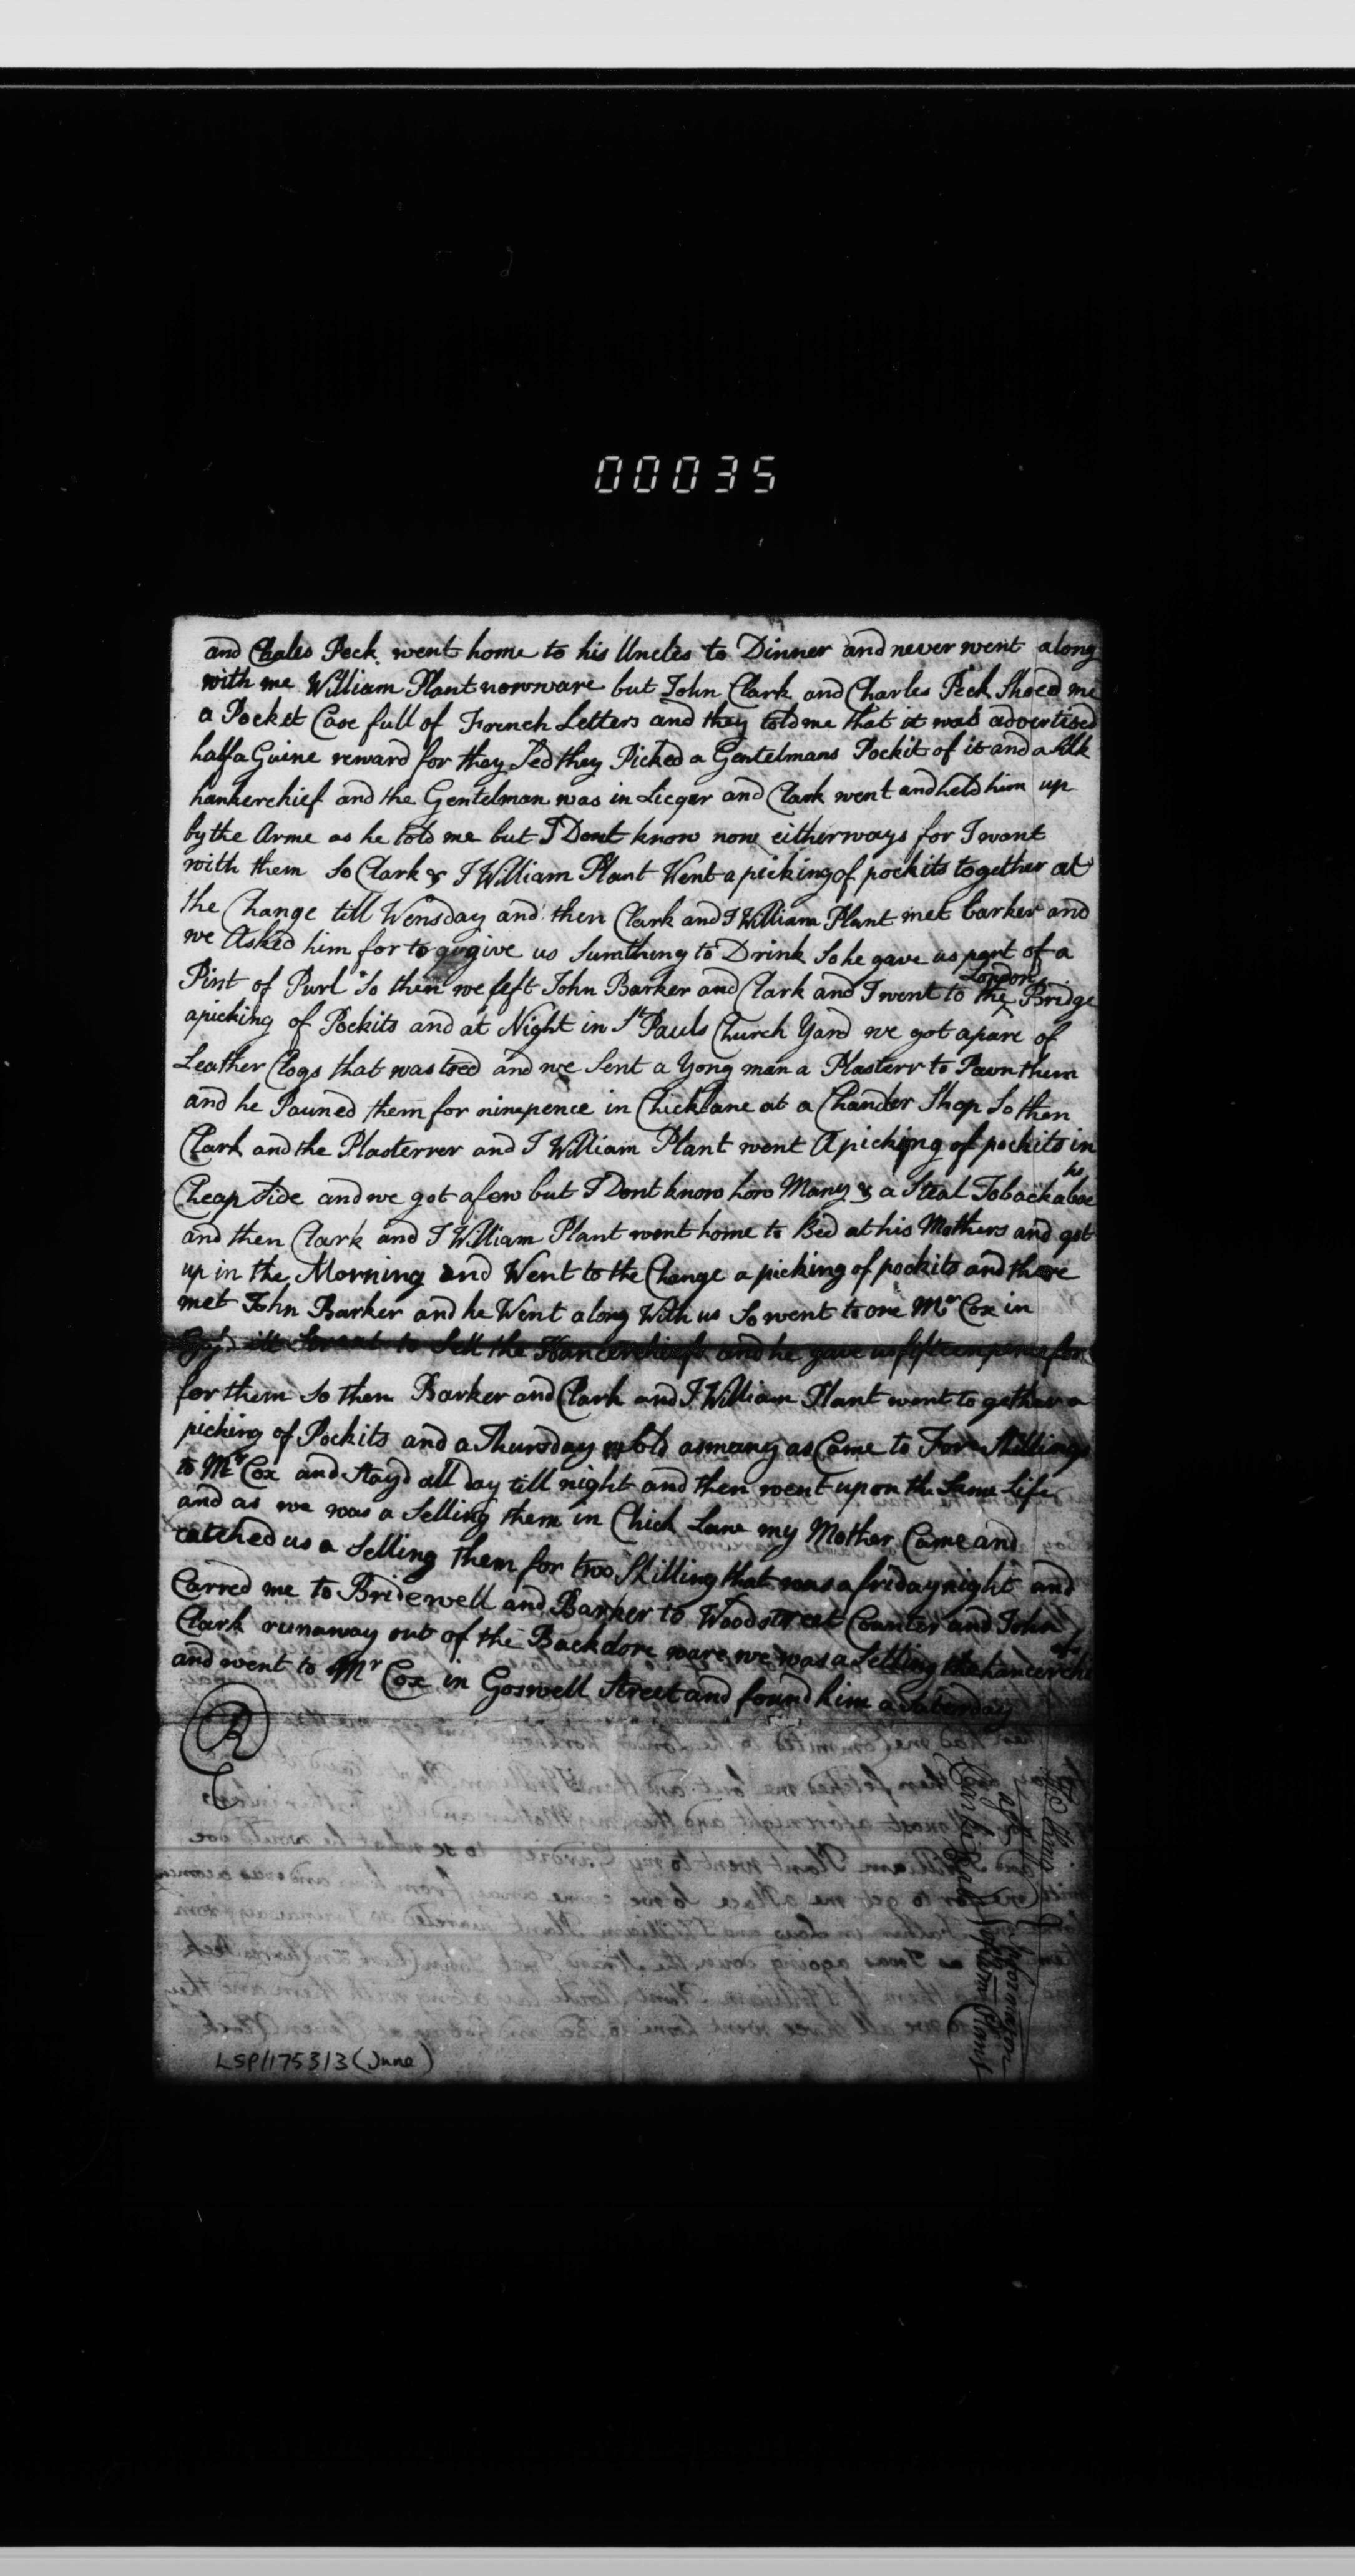 00035
and Chales Peck went home to his Uncles to Dinner and never went along
with me William Plant nowware but John Clark and Charles Peck Shoed me
a Pocket Case full of French Letters and they told me that it was advertised
half a Guine reward for they Sed they Picked a Gentelmans Pockit of it and a Silk
hankerchief and the Gentelman was in Licqer and Clark went and held him up
by the Arme as he told me but I Dont know now eitherways for I want
with them So Clark & I William Plant Went a picking of pockits together at
the Change till Wensday and then Clark and I William Plant met barker and
we Asked him for to give us Sumthing to Drink So he gave us part of a
Pint of Purl So then we left John Barker and Clark and I went to the London Bridge
apicking of Pockits and at Night in St Pauls Church Yard we got a pare of
Leather Clogs that was toed and we Sent a Yong man a Plasterr to Pawn them
and he Pauned them for ninepence in Chicklane at a Chander Shop So then
Clark and the Plasterrer and I William Plant went A picking of pockits in
Cheap Side and we got a few but I Dont know how Many & a Steal Tobacka box
and then Clark and I William Plant went home to Bed at his Mothers and got
up in the Morning and Went to the Change a picking of pockits and there
met John Barker and he Went along With us So went to one Mr Cox in
to Sell the Hancercheifs and he gave us fifteenpence for
for them So then Barker and Clark and I William Plant went to gether a
picking of Pockits and a Thursday sold as many as Came to For Shillings
to Mr Cox and Stayd all day till night and then went upon the Same Life
and as we was a Selling them in Chick Lane my Mother Came and
catched us a Selling them for two Shilling that was a friday night and
Carred me to Bridewell and Barker to Woodstreet Counter and John
Clark runaway out of the Backdore ware we was a Selling the hancerche
and went to Mr Cox in Goswell Street and found him a Saterday
R
LSP/1753/3 (June)